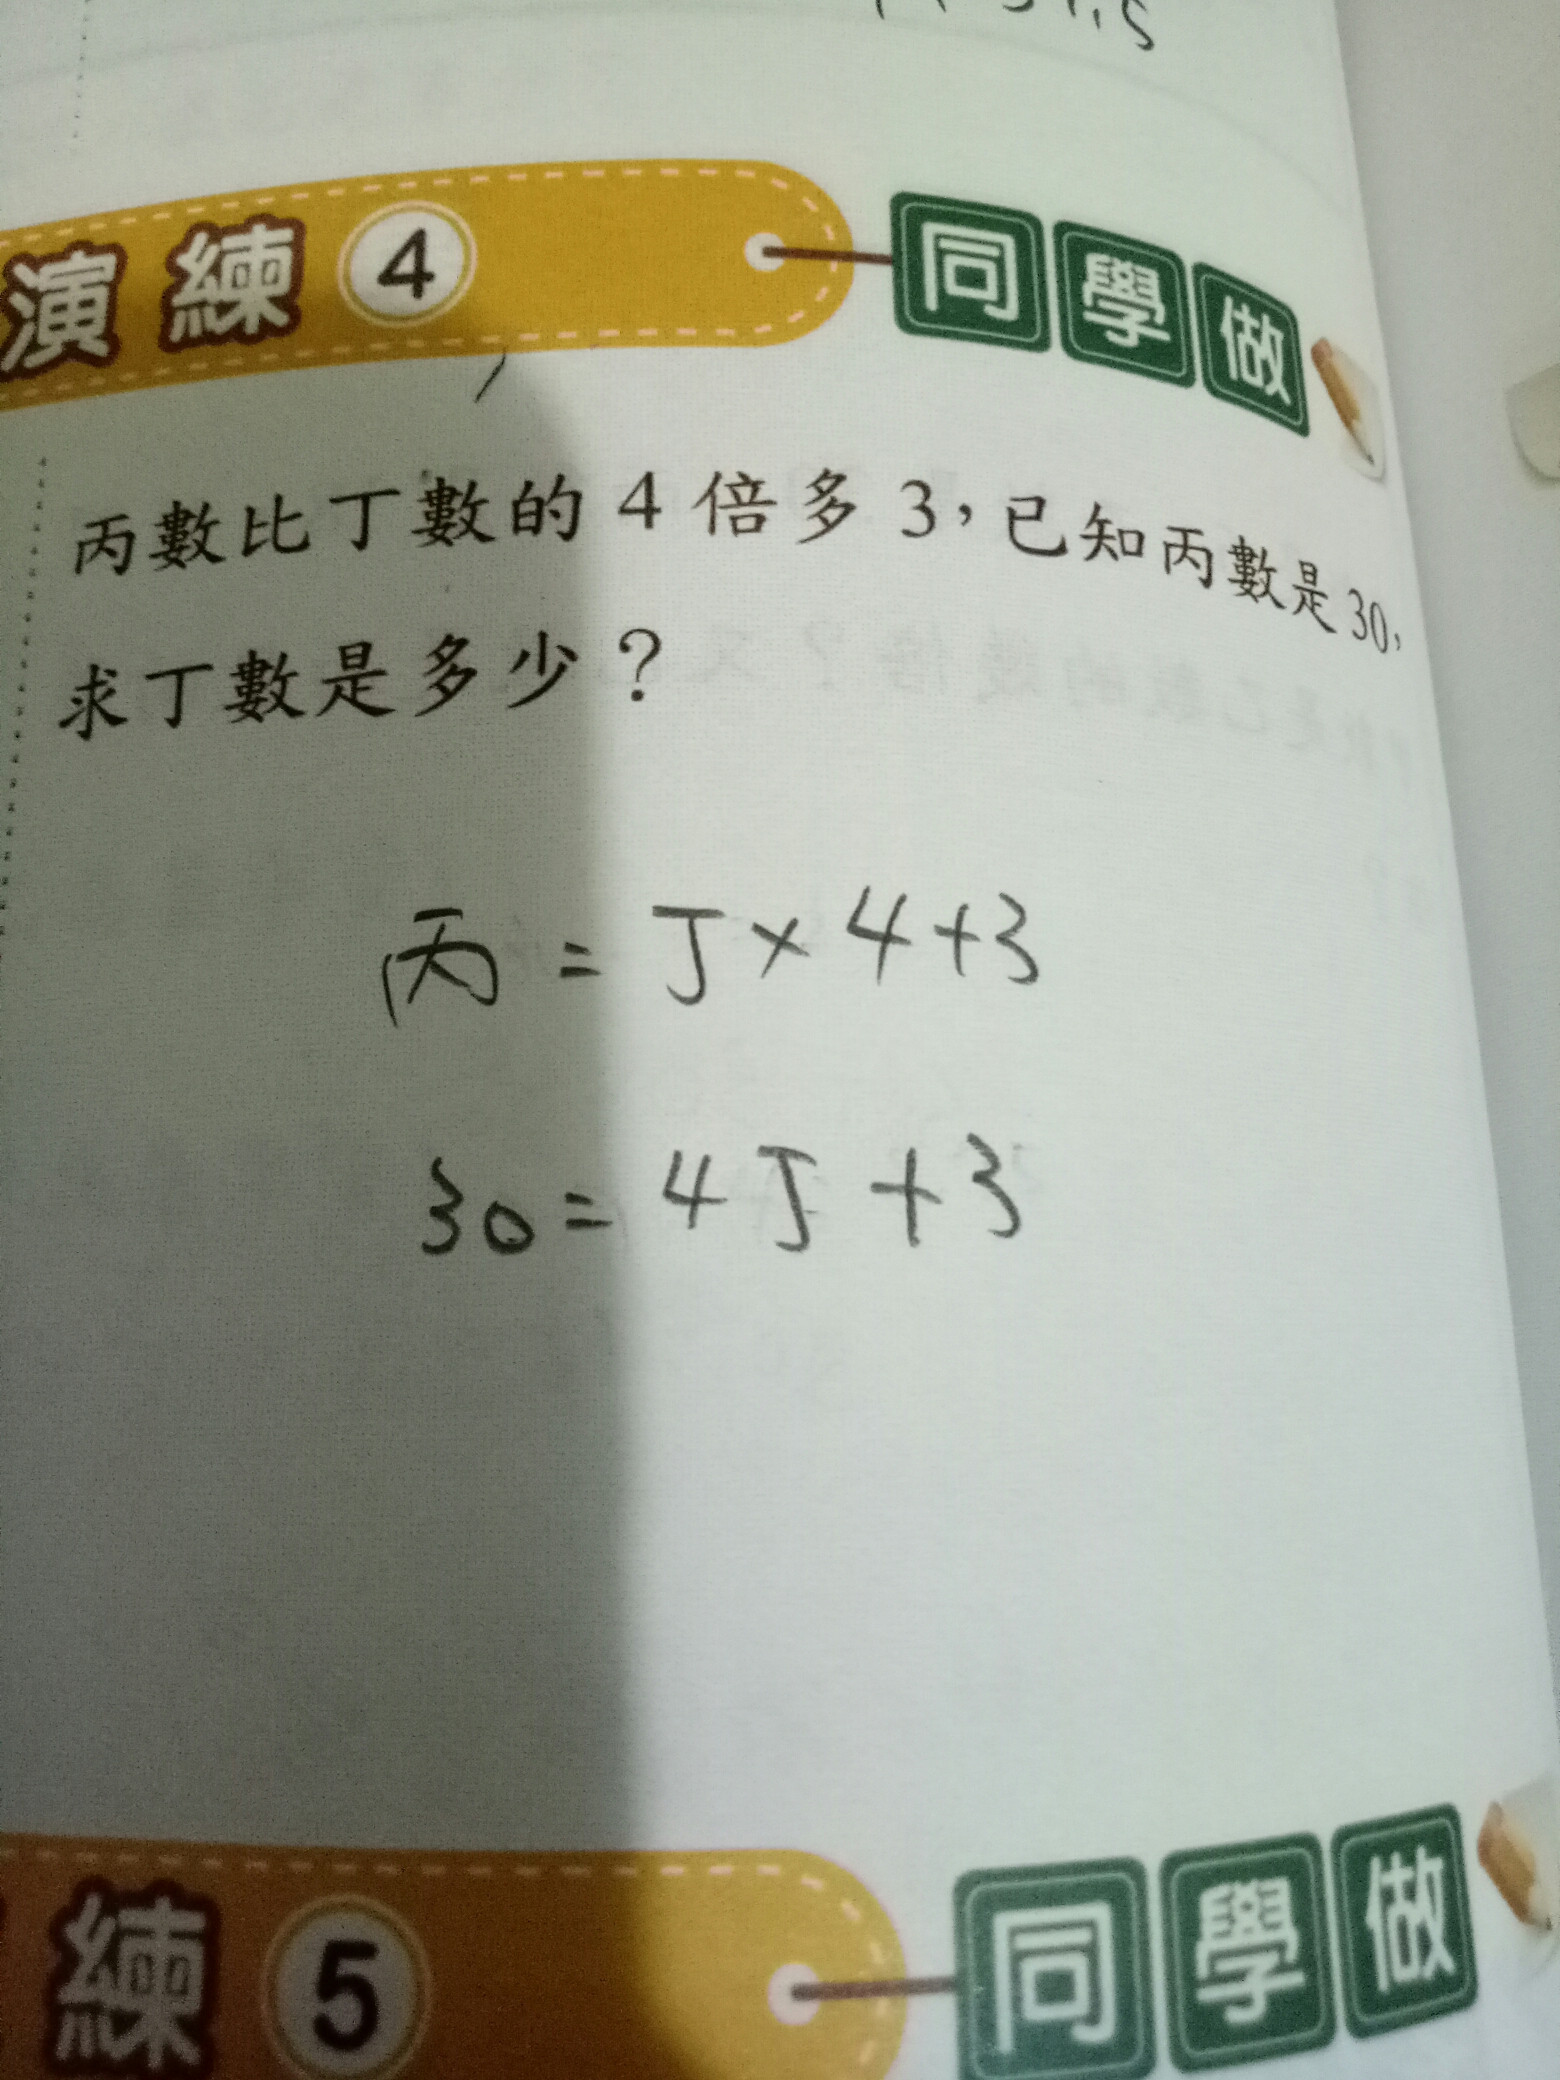 演練 4 同學做
丙數比丁數的 4 倍多 3,已知丙數是 30,
求丁數是多少?
丙 = 丁 × 4 + 3
30 = 4 丁 + 3
練 5 同學做